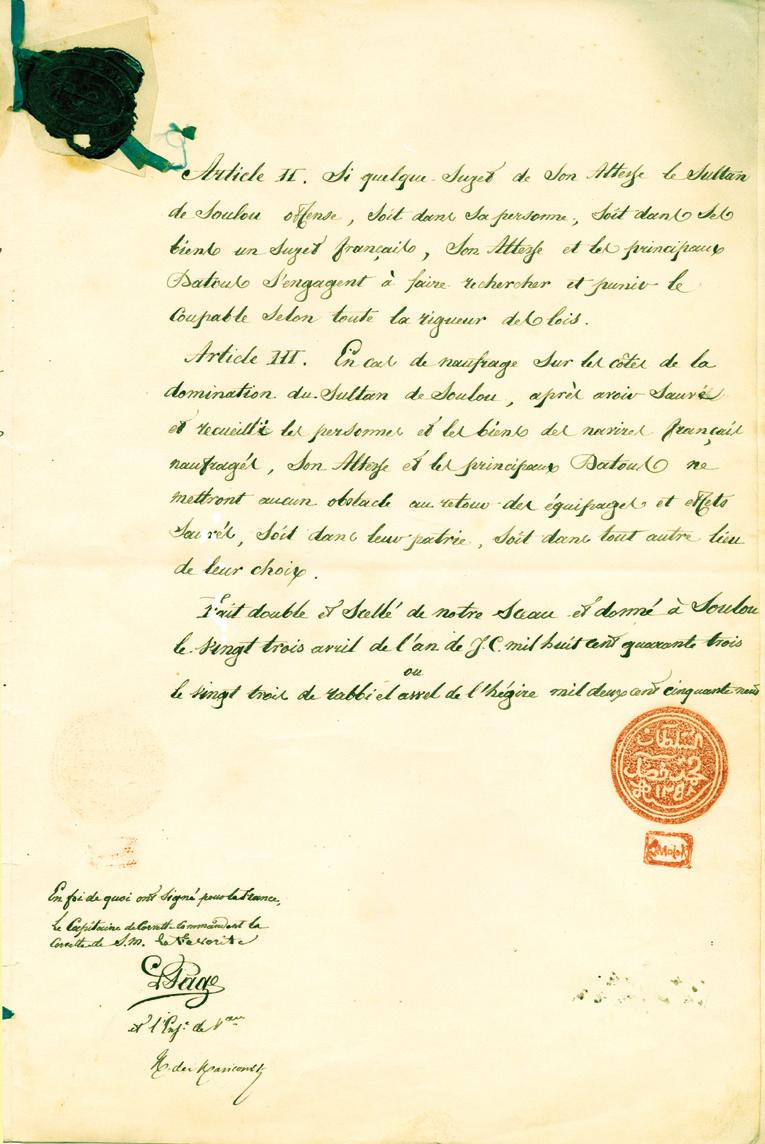 Article II. Si quelque Sujet de Son Altesse le Sultan
de Soulou offense, soit dans sa personne, soit dans ses
biens un Sujet français, Son Altesse et les principaux
Datous s'engagent à faire rechercher et punir le
Coupable selon toute la rigueur des lois.
Article III. En cas de naufrage sur les côtes de la
domination du Sultan de Soulou, après avoir sauvé
et recueilli les personnes et les biens des navires français
naufragés, Son Altesse et les principaux Datous ne
mettront aucun obstacle au retour des équipages et effets
Sauvés, soit dans leur patrie, soit dans tout autre lieu
de leur choix.
Fait double et Scellé de notre Sceau et donné à Soulou
le vingt trois avril de l'an de J.C. mil huit cent quarante trois
ou
le vingt trois de rabbi el awel de l'hégire mil deux cent cinquante neuf
السلطان
محمد فضل
En foi de quoi ont signé pour la France,
Le Capitaine de Corvette Commandant la
Corvette de S.M. la Favorite
Page
et l'Ens. de Veau